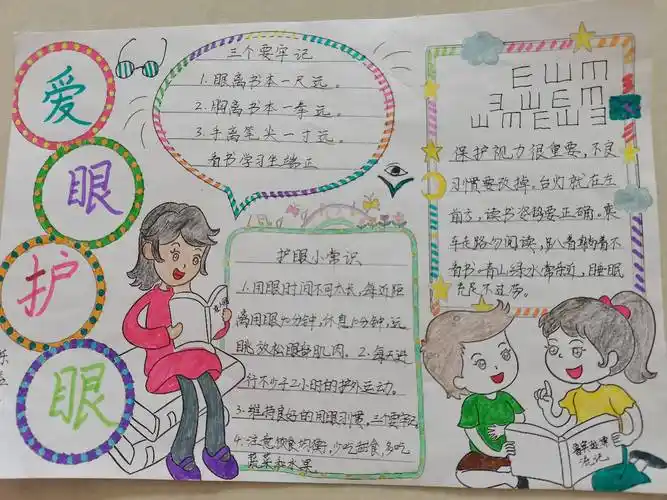 爱
眼
护
眼
三个要牢记
1.眼离书本一尺远。
2.胸离书本一拳远。
3.手离笔尖一寸远。
看书学习坐端正
E W M
E W E M
W M E W E
保护视力很重要,不良
习惯要改掉。台灯就在左
前方,读书姿势要正确。乘
车走路勿阅读,趴着躺着不
看书。青山绿水常亲近,睡眠
充足不过劳。
护眼小常识
1.用眼时间不可太长,每近距
离用眼40分钟,休息10分钟,远
眺放松眼部肌肉。2.每天进
行不少于2小时的户外运动。
3.维持良好的用眼习惯,三个要牢记
4.注意饮食均衡,少吃甜食,多吃
蔬菜和水果。